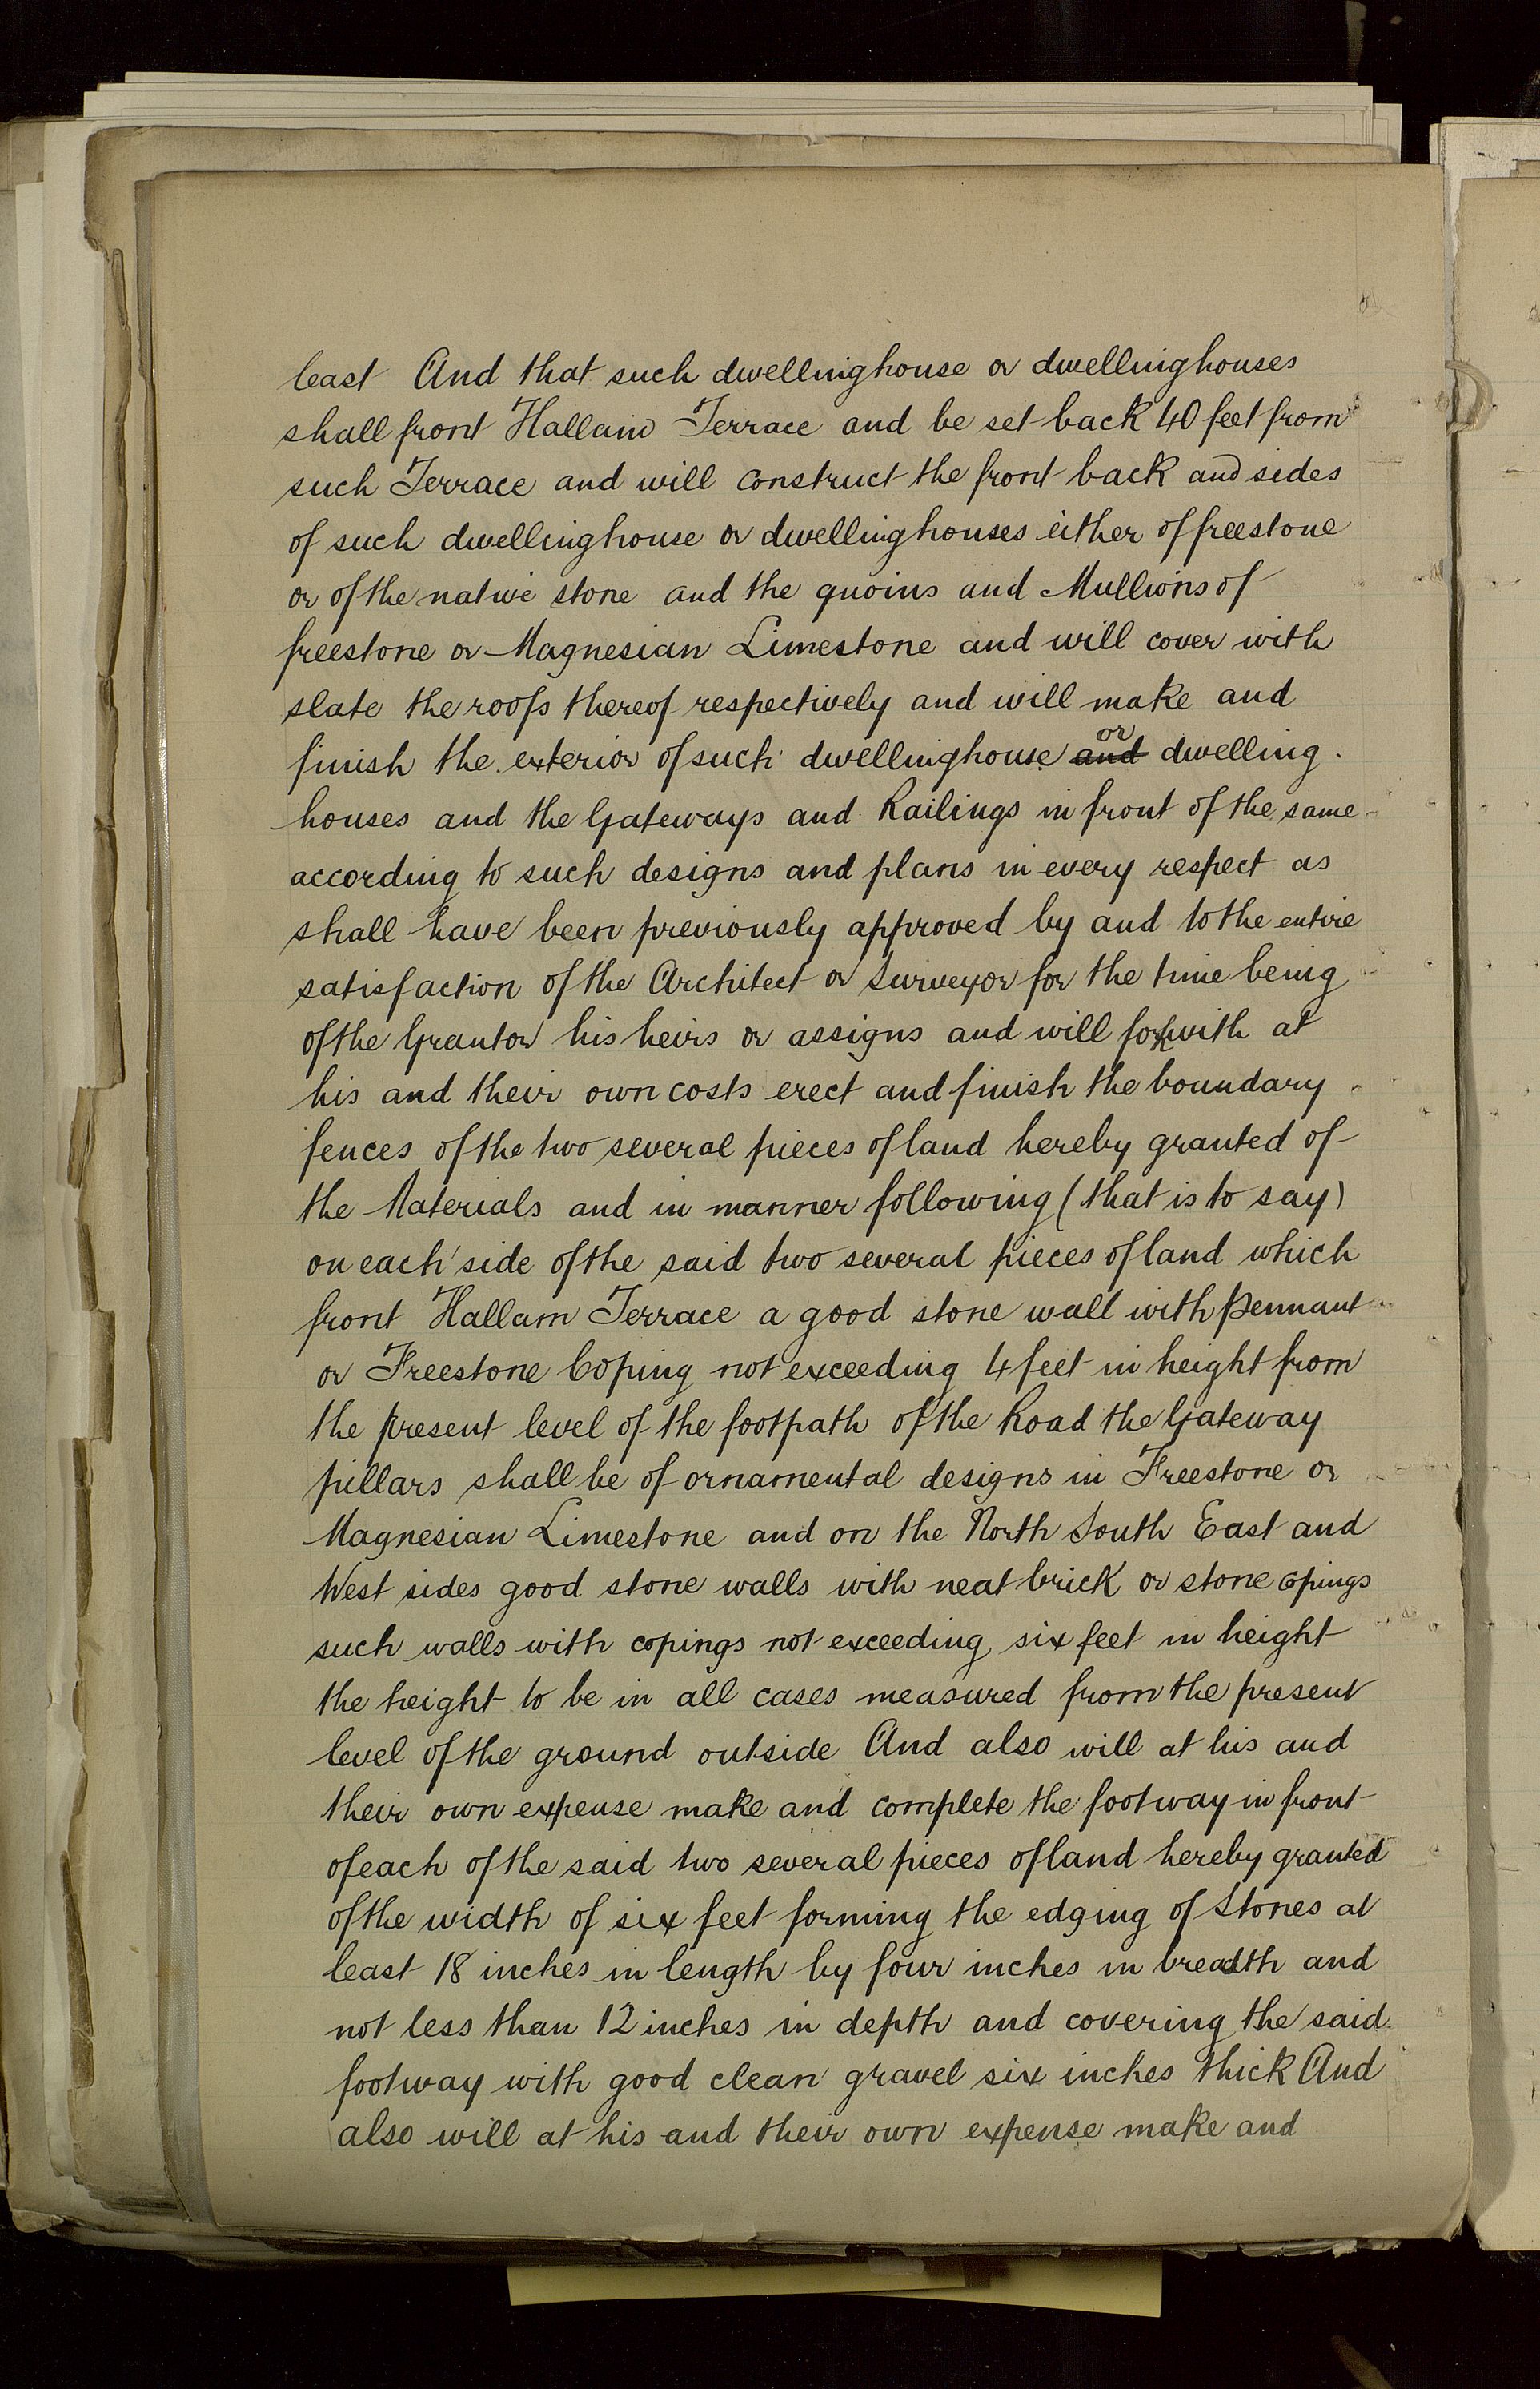 least And that such dwellinghouse or dwellinghouses
shall front Hallam Terrace and be set back 40 feet from
such Terrace and will construct the front back and sides
of such dwellinghouse or dwellinghouses either of freestone
or of the native stone and the quoins and Mullions of
freestone or Magnesian Limestone and will cover with
slate the roofs thereof respectively and will make and
or
finish the exterior of such dwellinghouse and dwelling
houses and the Gateways and Railings in front of the same
according to such designs and plans in every respect as
shall have been previously approved by and to the entire
satisfaction of the Architect or Surveyor for the time being
of the Grantor his heirs or assigns and will forthwith at
his and their own costs erect and finish the boundary
fences of the two several pieces of land hereby granted of
the Materials and in manner following (that is to say)
on each side of the said two several pieces of land which
front Hallam Terrace a good stone wall with Pennant
or Freestone Coping not exceeding 4 feet in height from
the present level of the footpath of the Road the Gateway
pillars shall be of ornamental designs in Freestone or
Magnesian Limestone and on the North South East and
West sides good stone walls with neat brick or stone copings
such walls with copings not exceeding six feet in height
the height to be in all cases measured from the present
level of the ground outside And also will at his and
their own expense make and complete the footway in front
of each of the said two several pieces of land hereby granted
of the width of six feet forming the edging of Stones at
least 18 inches in length by four inches in breadth and
not less than 12 inches in depth and covering the said
footway with good clean gravel six inches thick And
also will at his and their own expense make and